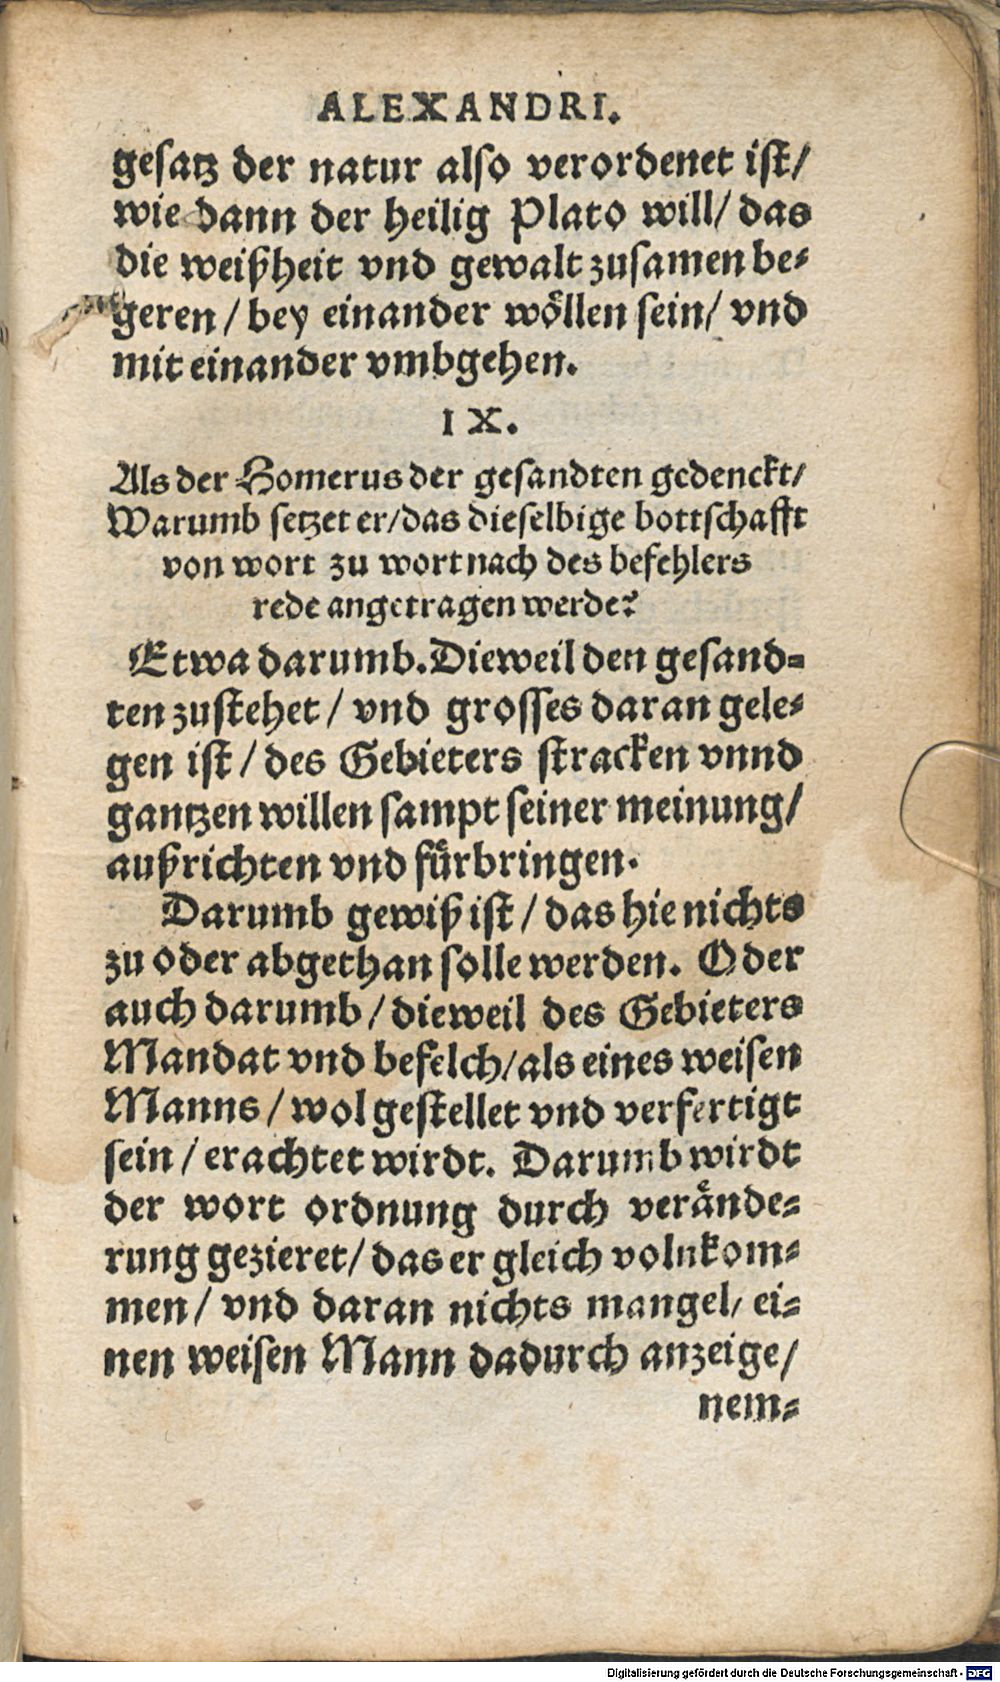 ALEXANDRI.
gesatz der natur also verordenet ist/
wie dann der heilig Plato will/ das
die weißheit vnd gewalt zusamen be-
geren / bey einander wöllen sein/ vnd
mit einander vmbgehen.
IX.
Als der Homerus der gesandten gedenckt/
Warumb setzet er/das dieselbige bottschafft
von wort zu wort nach des befehlers
rede angetragen werde?
Etwa darumb. Dieweil den gesand-
ten zustehet / vnd grosses daran gele-
gen ist / des Gebieters stracken vnnd
gantzen willen sampt seiner meinung/
außrichten vnd fürbringen.
Darumb gewiß ist / das hie nichts
zu oder abgethan solle werden. Oder
auch darumb / dieweil des Gebieters
Mandat vnd befelch/als eines weisen
Manns / wol gestellet vnd verfertigt
sein / erachtet wirdt. Darumb wirdt
der wort ordnung durch verände-
rung gezieret/ das er gleich volnkom-
men / vnd daran nichts mangel/ ei-
nen weisen Mann dadurch anzeige/
nem-
Digitalisierung gefördert durch die Deutsche Forschungsgemeinschaft - DFG